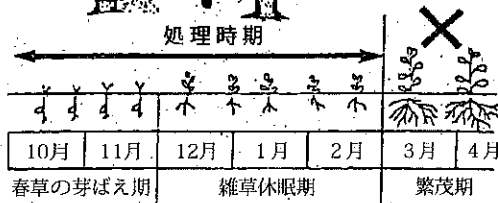 処理時期
10月 11月 12月 1月 2月 3月 4月
春草の芽ばえ期 雑草休眠期 繁茂期